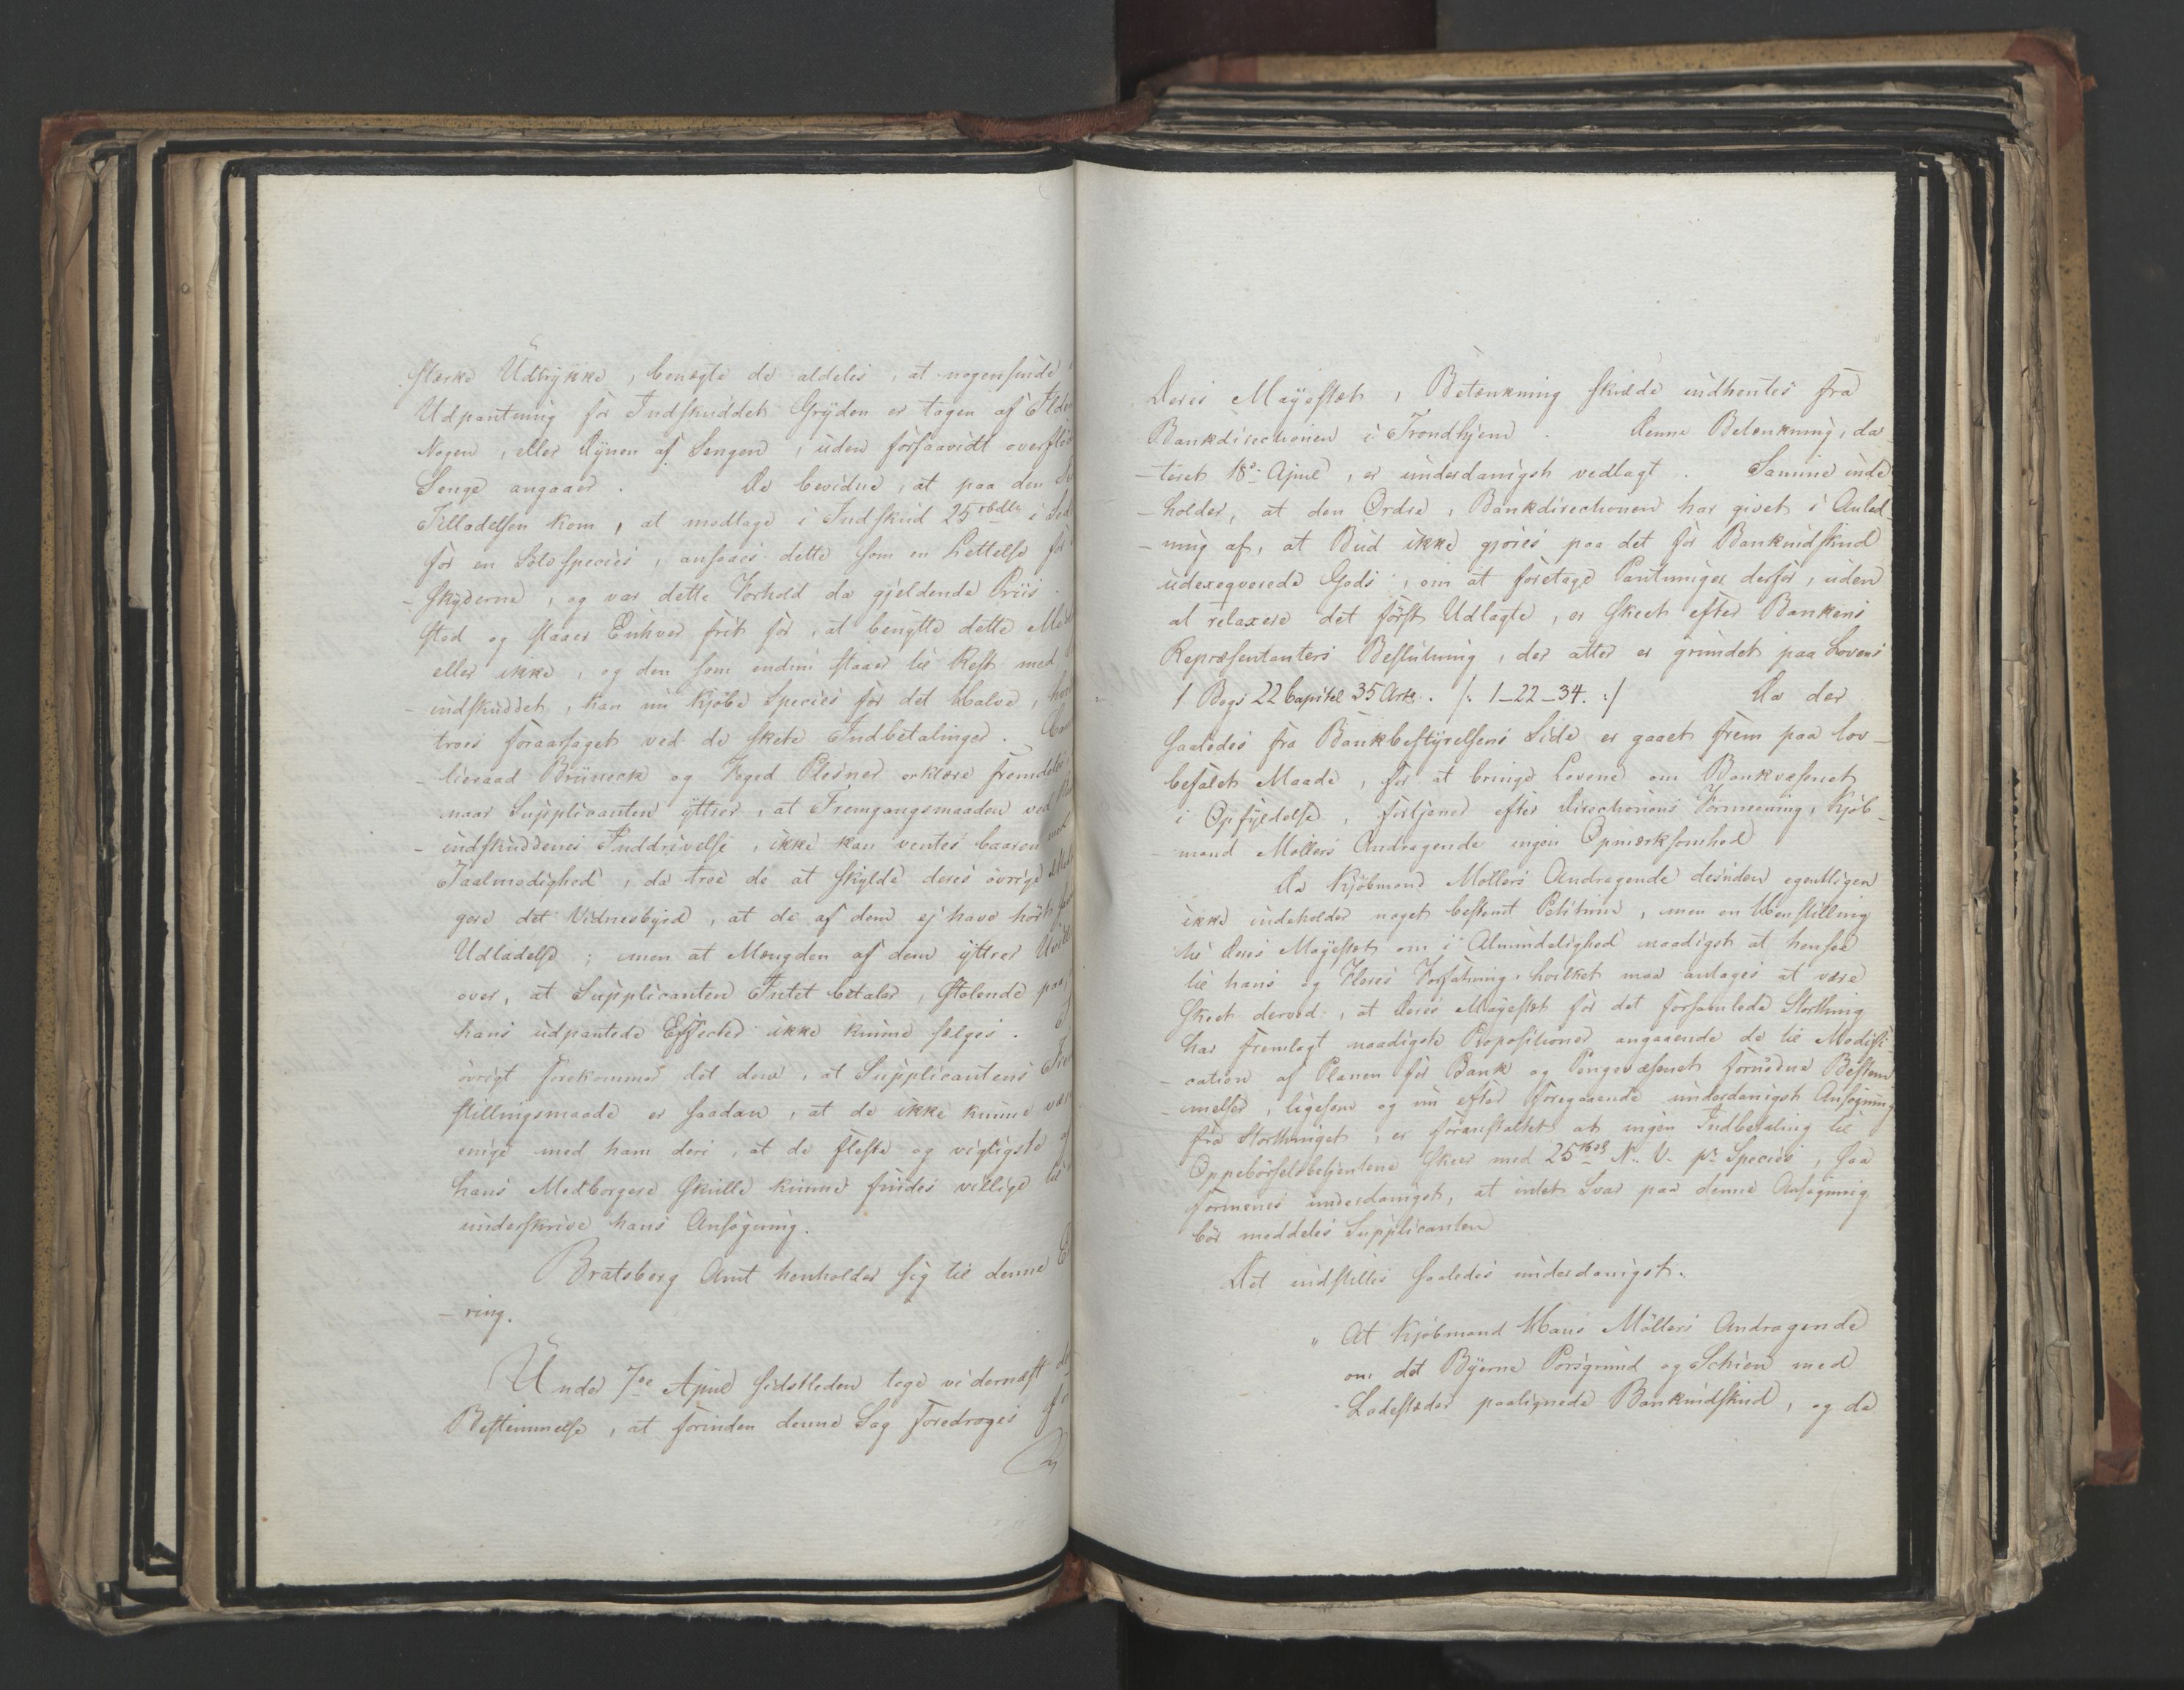 stærke Udtrykke, benegte de aldeles, at nogensinde
Udpantning for Indskuddet Gryden er tagen af Ilden
Nogen, eller Dynen af Sengen, uden forsaavidt overflød
Senge angaaer. De bevidne, at paa den
Tilladelsen kom, at modtage i Indskud 25 rbdlr i Sed
for en Sølvspecies, ansaaes dette som en Lettelse for
-skyderne, og var dette Forhold da gjeldende Priis.
stod og staaer Enhver frit for, at benytte dette
eller ikke, og den som endnu staaer til Rest med
-indskuddet, kan nu kjøbe Species for det Halve,
troes foraarsaget ved de skete Indbetalinger.
-lieraad Brüneck og Foged Plesner erklære fremdeles,
naar Supplicanten yttrer, at Fremgangsmaaden ved
-indskuddenes Inddrivelse, ikke kan ventes baaren med
Taalmodighed, da troe de at skylde deres øvrige Med
gere det Vidnesbyrd, at de af dem ej have hørt
Udladelse; men at Mængden af dem yttrer
over, at Supplicanten Intet betaler, stolende paa,
hans udpantede Effecter ikke kunne sælges.
øvrigt forekommer det dem, at Supplicantens
stillingsmaade er saadan, at de ikke kunne være
enige med ham deri, at de fleste og vigtigste af
hans Medborgere skulle kunne findes villige til
underskrive hans Ansøgning.
Bratsberg Amt henholder sig til denne
-ring.
Under 7de April sidstleden toge vi dernæst
Bestemmelse, at forinden denne Sag foredroges
Deres Mayestæt, Betænkning skulde indhentes fra
Bankdirectionen i Trondhjem. Denne Betænkning, da-
-teret 18de April, er underdanigst vedlagt. Samme inde-
-holder, at den Ordre, Bankdirectionen har givet i Anled-
-ning af, at Bud ikke gjøres paa det for Bankindskud
udexeqverede Gods, om at foretage Pantninger derfor, uden
at relaxere det først Udlagte, er skeet efter Bankens
Repræsentanters Beslutning, der atter er grundet paa Lovens
1 Bogs 22 Capitel 35 Art. /: 1-22-34. :/ Da der
saaledes fra Bankbestyrelsens Side er gaaet frem paa lov-
befalet Maade, for at bringe Lovene om Bankvæsenet
i Opfyldelse, fortjener efter Directionens Formeening, Kjøb-
-mand Møllers Andragende ingen Opmærksomhed
Da Kjøbmand Møllers Andragende desuden egentligen
ikke indeholder noget bestemt Petitum, men en Henstilling
til Deres Mayestæt om i Almindelighed naadigst at hensee
til hans og Fleres Forfatning, hvilket maa antages at være
skeet derved, at Deres Mayestæt for det forsamlede Storthing
har fremlagt naadigste Propositioner angaaende de til Modifi-
-cation af Planen for Bank og Pengevæsenet fornødne Bestem-
-melser, ligesom og nu efter foregaaende underdanigst Ansøgning
fra Storthinget, er foranstaltet at ingen Indbetaling til
Oppebørselsbetjentene skeer med 25 rbd N. V. pr Species, saa
formenes underdanigst, at intet Svar paa denne Ansøgning
bør meddeles Supplicanten
Det indstilles saaledes underdanigst:
" At Kjøbmand Hans Møllers Andragende
om det Byerne Porsgrund og Schien med
Ladesteder paalignede Bankindskud, og de